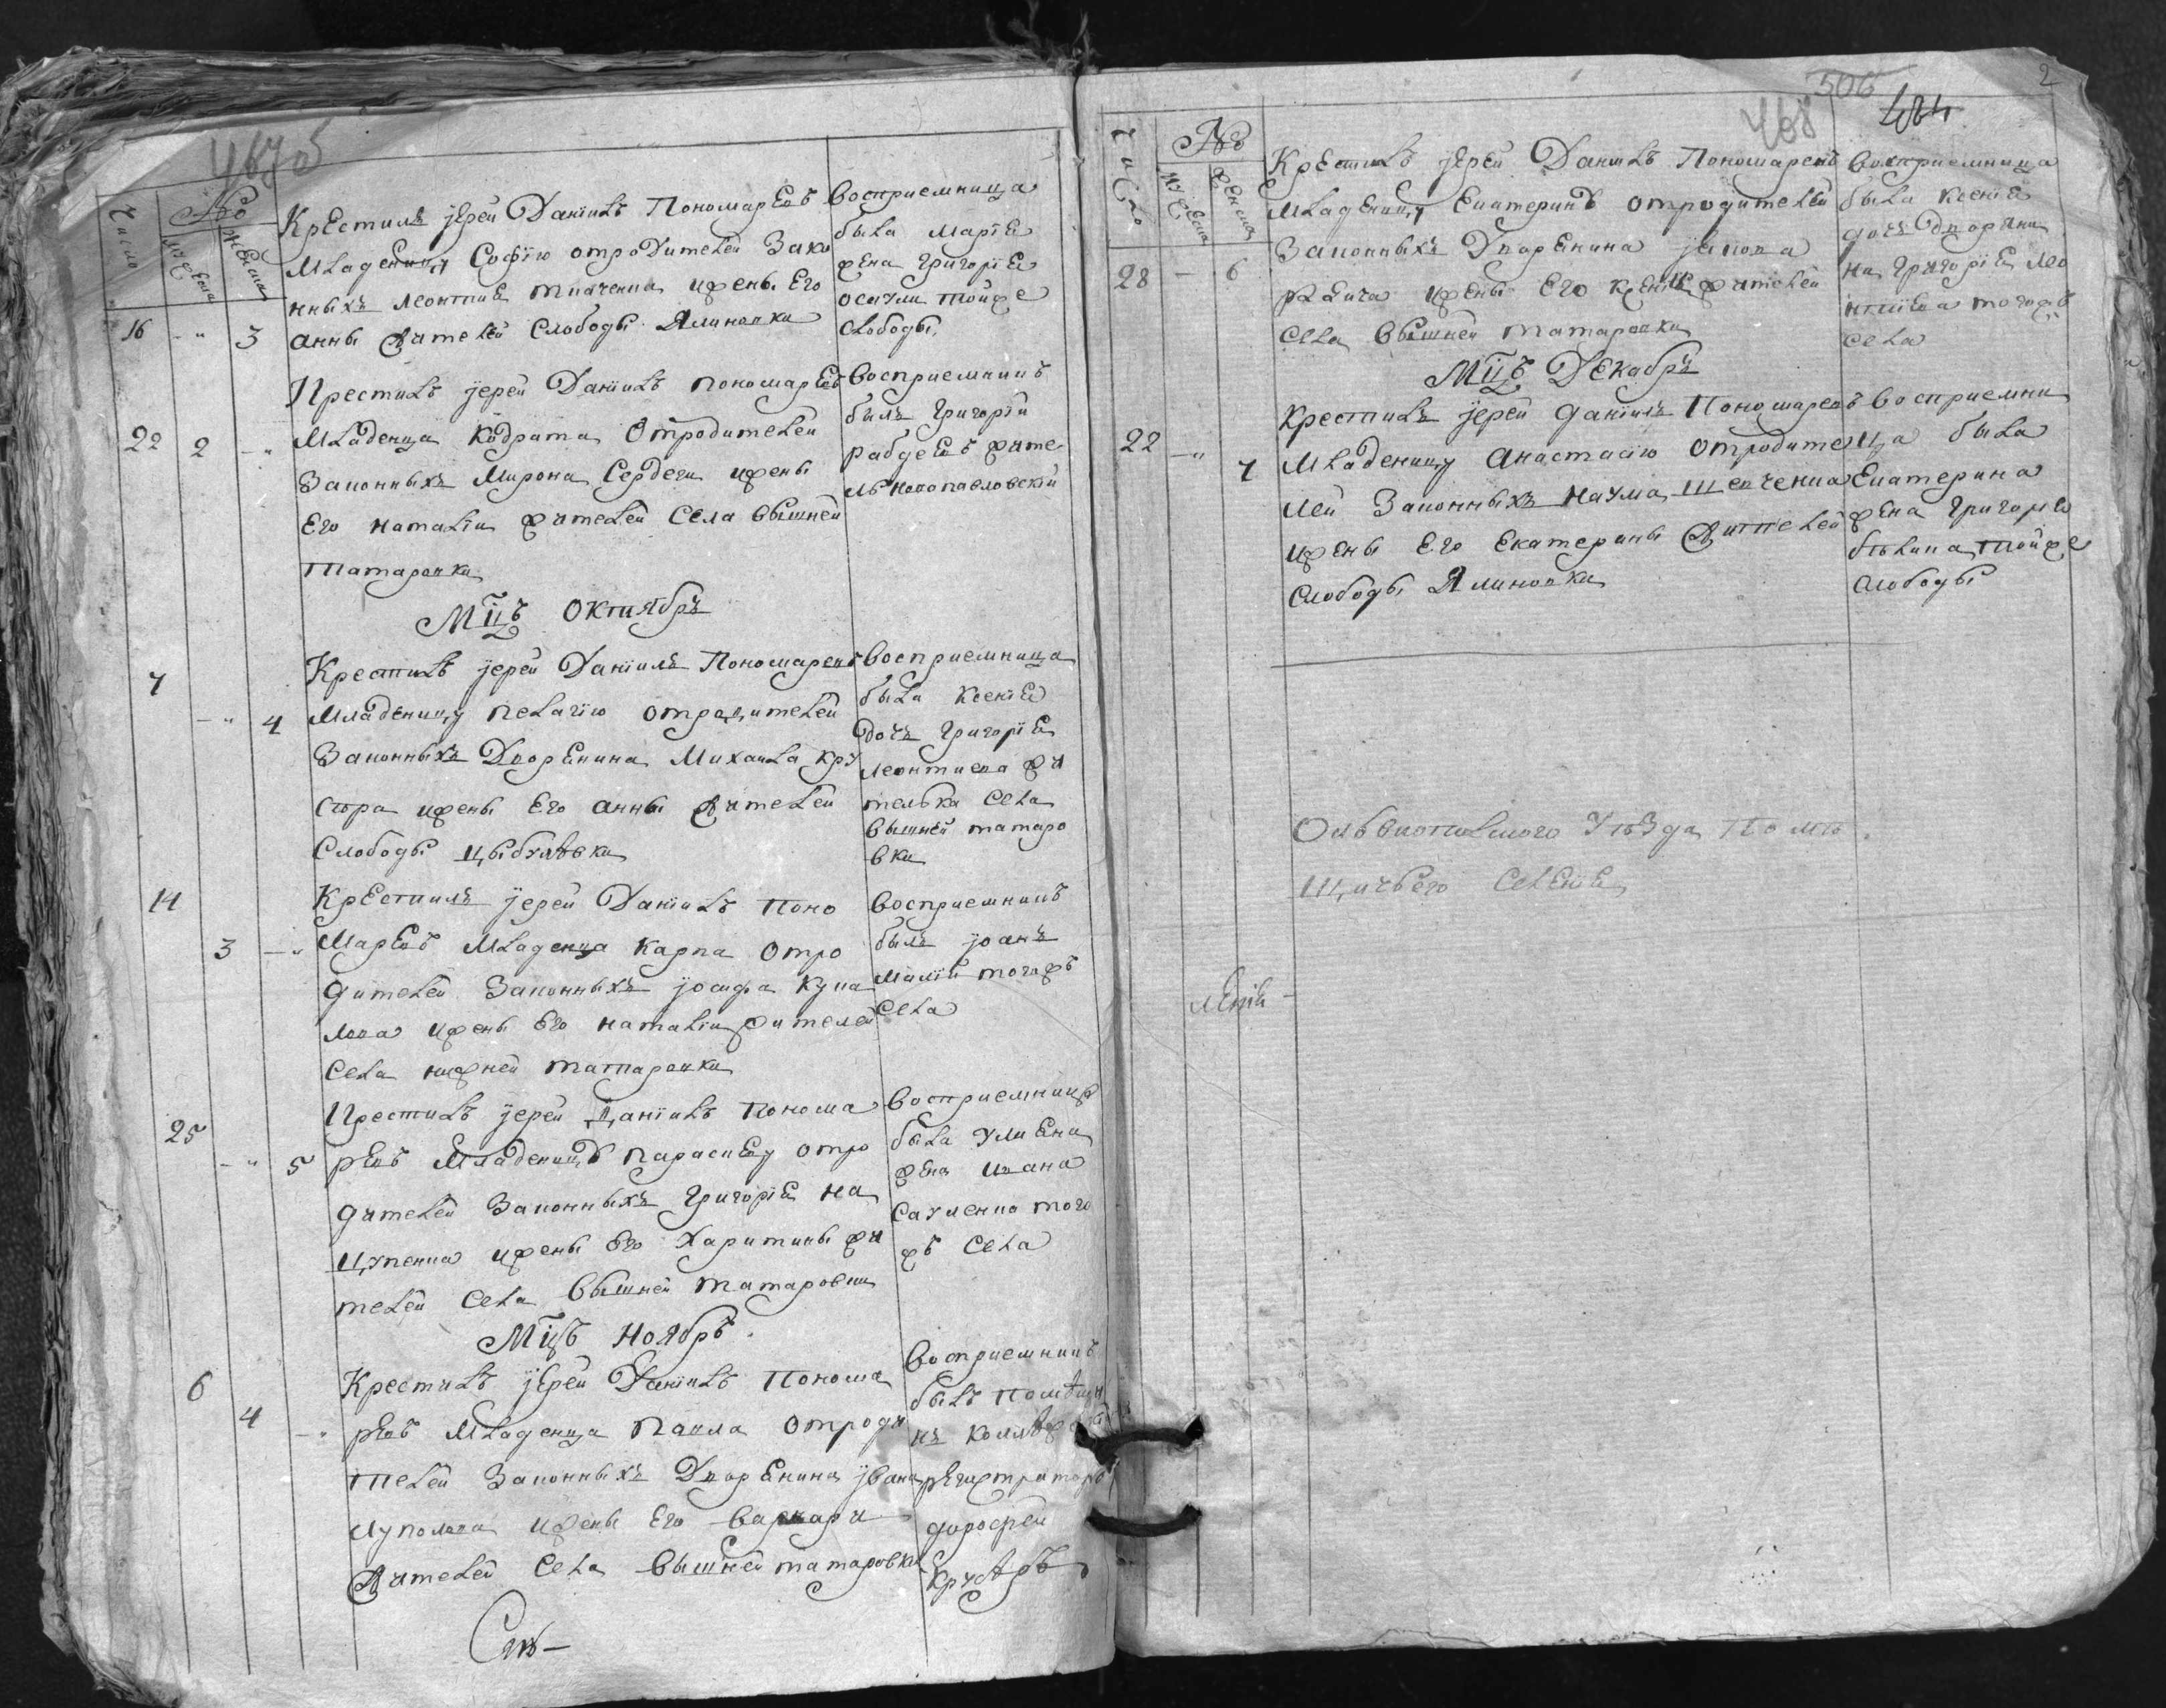 467об
Число
№
муска
женска
Крестилъ іерей Даніилъ Пономаревъ
младеницу Софію отродителей Зако
нныхъ Леонтиѧ Ткаченка ижены Его
16 - " 3 анны жителей Слободы Ялиновки
Восприемница
была Маріѧ
жена Григоріѧ
тойже
Слободы
Крестилъ іерей Даніилъ Пономаревъ
22 2 - " Младенца Кодрата Отродителей
Законныхъ Мирона Сердеги ижены
Его Наталіи жителей Села Вышней
Татаровки
Восприемникъ
былъ Григорій
жите
ль Новопавловскій
Мцъ Октябръ
7 - " 4
Крестилъ іерей Даніилъ Пономаревъ
Младеницу Пелагію отродителей
Законныхъ Дворенина Михаила Кру
стра ижены Его анны жителей
Слободы Цыбулѣвки
Восприемница
была Ксеніѧ
дочъ Григоріѧ
Леонтиева жи
телька Села
Вышней Татаро
вки
14
3 - "
Крестилъ іерей Даніилъ Поно
Маревъ Младенца Карпа Отро
дителей Законныхъ іосифа
ижены Его Наталіи жителей
Села нижней Татаровки
Восприемникъ
былъ іоанъ
Малій тогожъ
Села
25
- " 5
Крестилъ іерей Даніилъ Понома
ревъ Младеницу Параскеву отро
дителей Законныхъ Григоріѧ На
цупенка ижены Его Харитины жи
телей Села Вышней Татаровки
Восприемница
была Улиѧна
жена Ивана
Сауленка того
жъ Села
Мцъ Ноябръ
6
4 - "
Крестилъ іерей Даніилъ Понома
ревъ Младенца Павла Отроди
телей Законныхъ Дворенина іѵана
ижены Его Варвари
Жителей Села Вышней татаровки
Восприемникъ
былъ Помѣщи
къ
регистраторъ
дорофей
Крустръ
2
506
468
484
Число
№
муска
женска
28 - 6
Крестилъ іерей Даніилъ Пономаревъ
Младеницу Екатерину отродителей
Законныхъ Дворенина іакова
ижены Его Ксеніи жителей
Села Вышней Татаровки
Восприемница
была Ксеніѧ
дочъ Дворѧни
на Григоріѧ Лео
нтиева тогожъ
Села
Мцъ Декабръ
22 - " 7
Крестилъ іерей Даніилъ Пономаревъ
Младеницу Анастасію Отродите
лей Законныхъ Наума Шевченка
ижены Его Екатерины Жителей
Слободы Ялиновки
Восприемни
ца была
Екатерина
жена Григоріѧ
тойже
Слободы
Ольвиопольского Уѣзда По мѣ
щичьего Селеніѧ